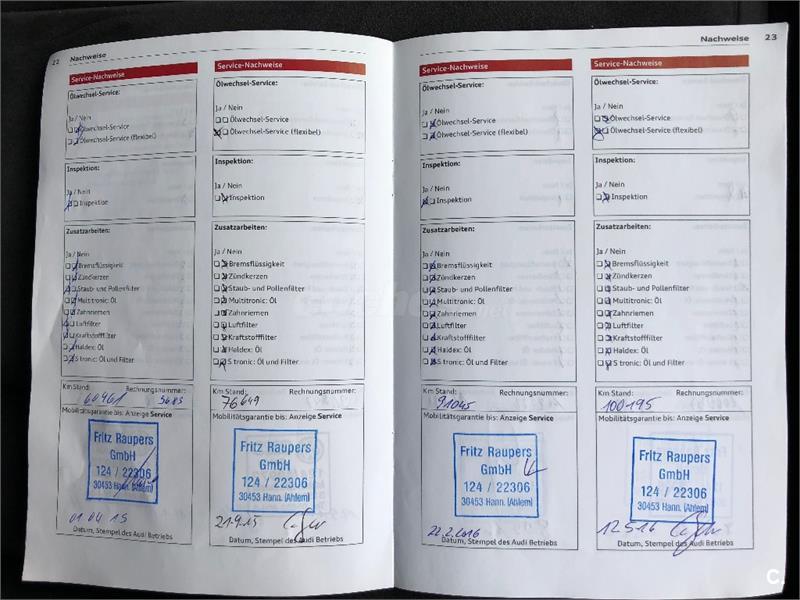 22 Nachweise
Service-Nachweise
Ölwechsel-Service:
Ja / Nein
Ölwechsel-Service
Ölwechsel-Service (flexibel)
Inspektion:
Ja / Nein
Inspektion
Zusatzarbeiten:
Ja / Nein
Bremsflüssigkeit
Zündkerzen
Staub- und Pollenfilter
Multitronic: Öl
Zahnriemen
Luftfilter
Kraftstofffilter
Haldex: Öl
S tronic: Öl und Filter
Km Stand: Rechnungsnummer:
60461 5685
Mobilitätsgarantie bis: Anzeige Service
Fritz Raupers
GmbH
124 / 22306
30453 Hann. (Ahlem)
01 04 15
Datum, Stempel des Audi Betriebs
Service-Nachweise
Ölwechsel-Service:
Ja / Nein
Ölwechsel-Service
Ölwechsel-Service (flexibel)
Inspektion:
Ja / Nein
Inspektion
Zusatzarbeiten:
Ja / Nein
Bremsflüssigkeit
Zündkerzen
Staub- und Pollenfilter
Multitronic: Öl
Zahnriemen
Luftfilter
Kraftstofffilter
Haldex: Öl
S tronic: Öl und Filter
Km Stand: Rechnungsnummer:
76649
Mobilitätsgarantie bis: Anzeige Service
Fritz Raupers
GmbH
124 / 22306
30453 Hann. (Ahlem)
21.9.15
Datum, Stempel des Audi Betriebs
Nachweise 23
Service-Nachweise
Ölwechsel-Service:
Ja / Nein
Ölwechsel-Service
Ölwechsel-Service (flexibel)
Inspektion:
Ja / Nein
Inspektion
Zusatzarbeiten:
Ja / Nein
Bremsflüssigkeit
Zündkerzen
Staub- und Pollenfilter
Multitronic: Öl
Zahnriemen
Luftfilter
Kraftstofffilter
Haldex: Öl
S tronic: Öl und Filter
Km Stand: Rechnungsnummer:
91045
Mobilitätsgarantie bis: Anzeige Service
Fritz Raupers
GmbH
124 / 22306
30453 Hann. (Ahlem)
22.2.2016
Datum, Stempel des Audi Betriebs
Service-Nachweise
Ölwechsel-Service:
Ja / Nein
Ölwechsel-Service
Ölwechsel-Service (flexibel)
Inspektion:
Ja / Nein
Inspektion
Zusatzarbeiten:
Ja / Nein
Bremsflüssigkeit
Zündkerzen
Staub- und Pollenfilter
Multitronic: Öl
Zahnriemen
Luftfilter
Kraftstofffilter
Haldex: Öl
S tronic: Öl und Filter
Km Stand: Rechnungsnummer:
100195
Mobilitätsgarantie bis: Anzeige Service
Fritz Raupers
GmbH
124 / 22306
30453 Hann. (Ahlem)
12.5.16
Datum, Stempel des Audi Betriebs
C.